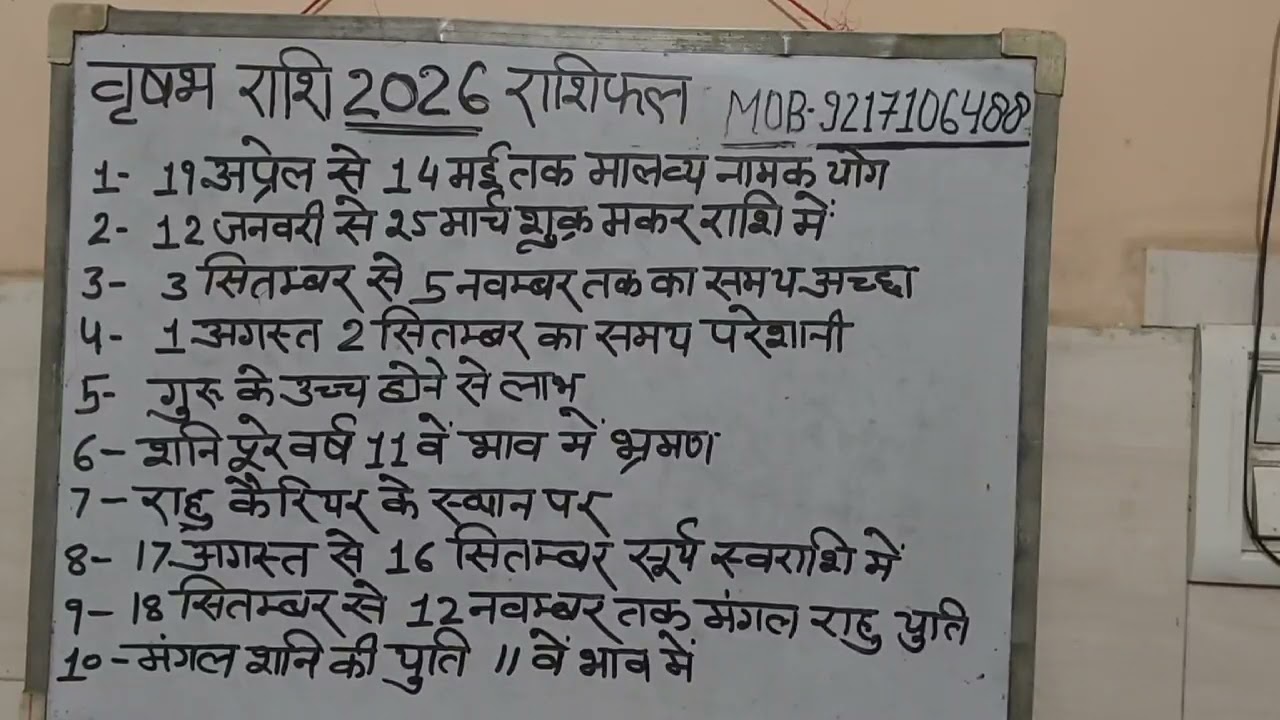 वृषभ राशि 2026 राशिफल MOB-9217106488
1- 19 अप्रेल से 14 मई तक मालव्य नामक योग
2- 12 जनवरी से 25 मार्च शुक्र मकर राशि में
3- 3 सितम्बर से 5 नवम्बर तक का समय अच्छा
4- 1 अगस्त 2 सितम्बर का समय परेशानी
5- गुरू के उच्च होने से लाभ
6- शनि पूरे वर्ष 11 वें भाव में भ्रमण
7- राहु कैरियर के स्थान पर
8- 17 अगस्त से 16 सितम्बर सूर्य स्वराशि में
9- 18 सितम्बर से 12 नवम्बर तक मंगल राहु युति
10- मंगल शनि की युति 11 वें भाव में